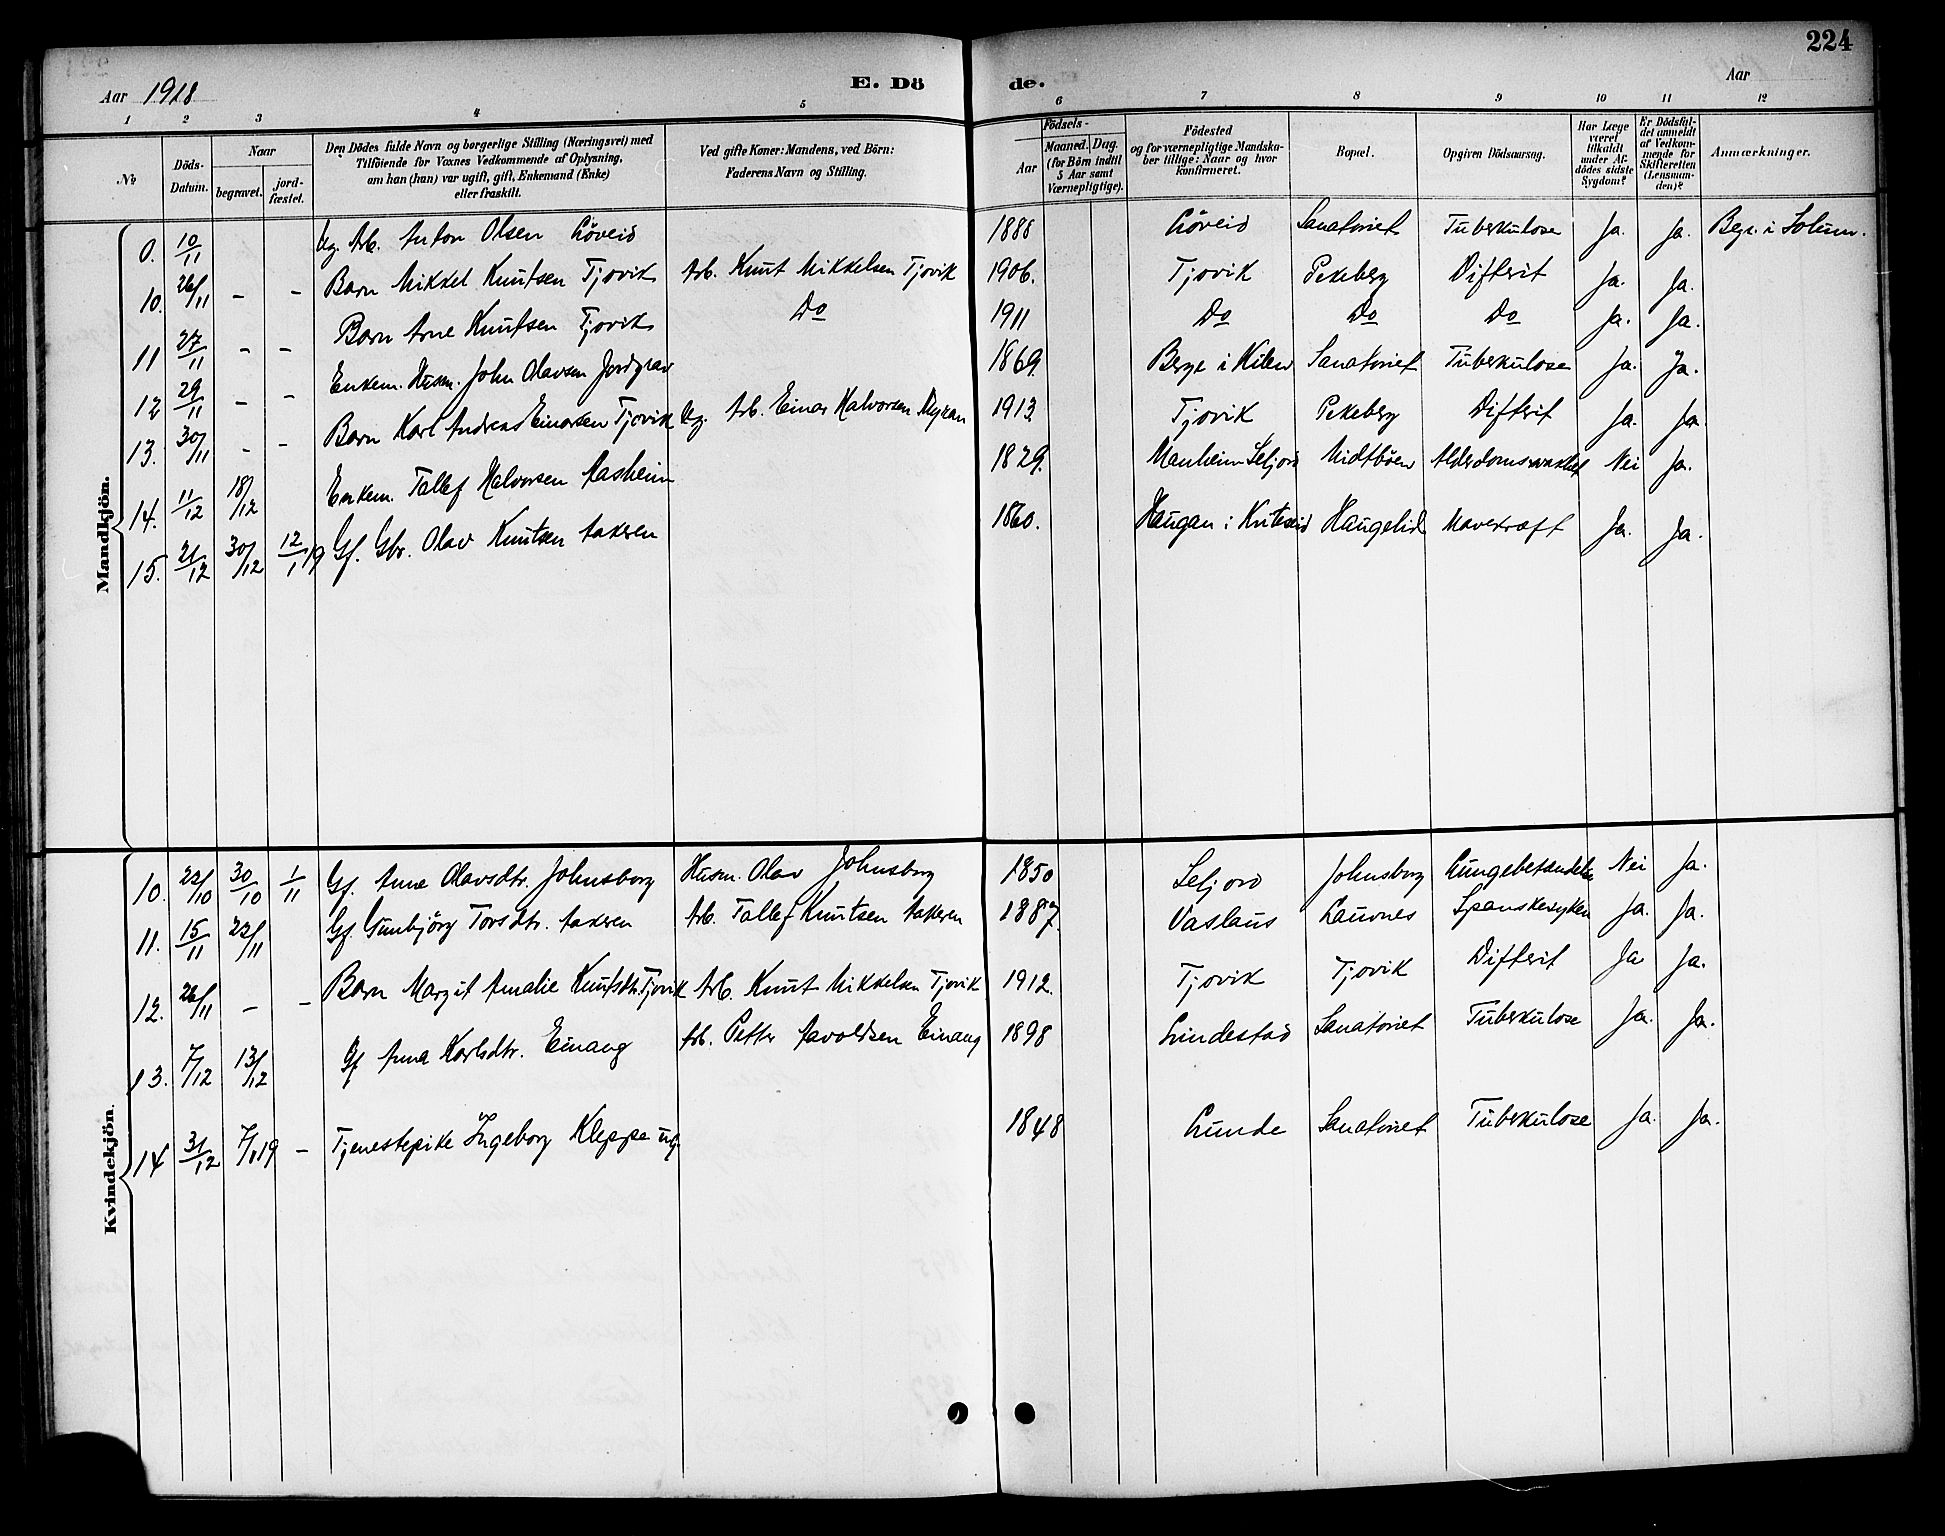 224
Aar 1918 E. Dö de. Aar
1 2 3 4 5 6 7 8 9 10 11 12
№ Döds-Datum. Naar begravet. jord-fæstet. Den Dödes fulde Navn og borgerlige Stilling (Næringsvei) med Tilföiende for Voxnes Vedkommende af Oplysning, om han (hun) var ugift, gift, Enkemand (Enke) eller fraskilt. Ved gifte Koner: Mandens, ved Börn: Faderens Navn og Stilling. Födsels- Aar Maaned. Dag. (for Börn indtil 5 Aar samt Værnepligtige). Födested og for værnepligtige Mandskaber tillige: Naar og hvor konfirmeret. Bopæl. Opgiven Dödsaarsag. Har Læge været tilkaldt under Afdödes sidste Sygdom? Er Dödsfaldet anmeldt af Vedkommende for Skifteretten (Lensmanden)? Anmærkninger.
Mandkjön.
0. 10/11 Ug. Arb. Anton Olsen Löveid 1888 Löveid Sanatoriet Tuberkulose Ja. Ja. Begr. i Solum.
10. 26/11 - - Barn Mikkel Knutsen Tjovik Arb. Knut Mikkelsen Tjovik 1906. Tjovik Pekeberg Difterit Ja. Ja.
11 27/11 - - Barn Arne Knutsen Tjovik Do 1911 Do Do Do Ja. Ja.
12 29/11 - - Enkem. Husm. John Olavsen Jordgrav 1869. Berge i Kilen Sanatoriet Tuberkulose Ja. Ja.
13. 30/11 - - Barn Karl Andreas Einarsen Tjovik Ug. Arb. Einar Halvorsen Myran 1913 Tjovik Pekeberg Difterit Ja. Ja.
14. 11/12 18/12 Enkem. Tallef Halvorsen Aasheim 1829. Manheim Seljord Midtböen Nei Ja.
15. 21/12 30/12 12/1 19 Gf. Gbr. Olav Knutsen Aakeren 1860. Haugan i Kviteseid Haugelid Mavekræft Ja. Ja.
Kvindekjön.
10. 22/10 30/10 1/11 Gf. Anne Olavsdtr. Johnsborg Husm. Olav Johnsborg 1850 Seljord Johnsborg Lungebetændelse Nei Ja.
11. 15/11 22/11 Gf. Gunbjörg Torsdtr. Aakeren Arb. Tallef Knutsen Aakeren 1887. Vaslaus Launes Spanskesyken Ja. Ja.
12. 26/11 - - Barn Margit Amalie Knutsdtr. Tjovik Arb. Knut Mikkelsen Tjovik 1912. Tjovik Tjovik Difterit Ja Ja.
13. 7/12 13/12 Gf Anna Karlsdtr. Einang Arb. Petter Aavoldsen Einang 1898 Lindestad Sanatoriet Tuberkulose Ja. Ja.
14 31/12 7/1 19 - Tjenestepike Ingeborg Kleppe ug. 1848 Lunde Sanatoriet Tuberkulose Ja. Ja.